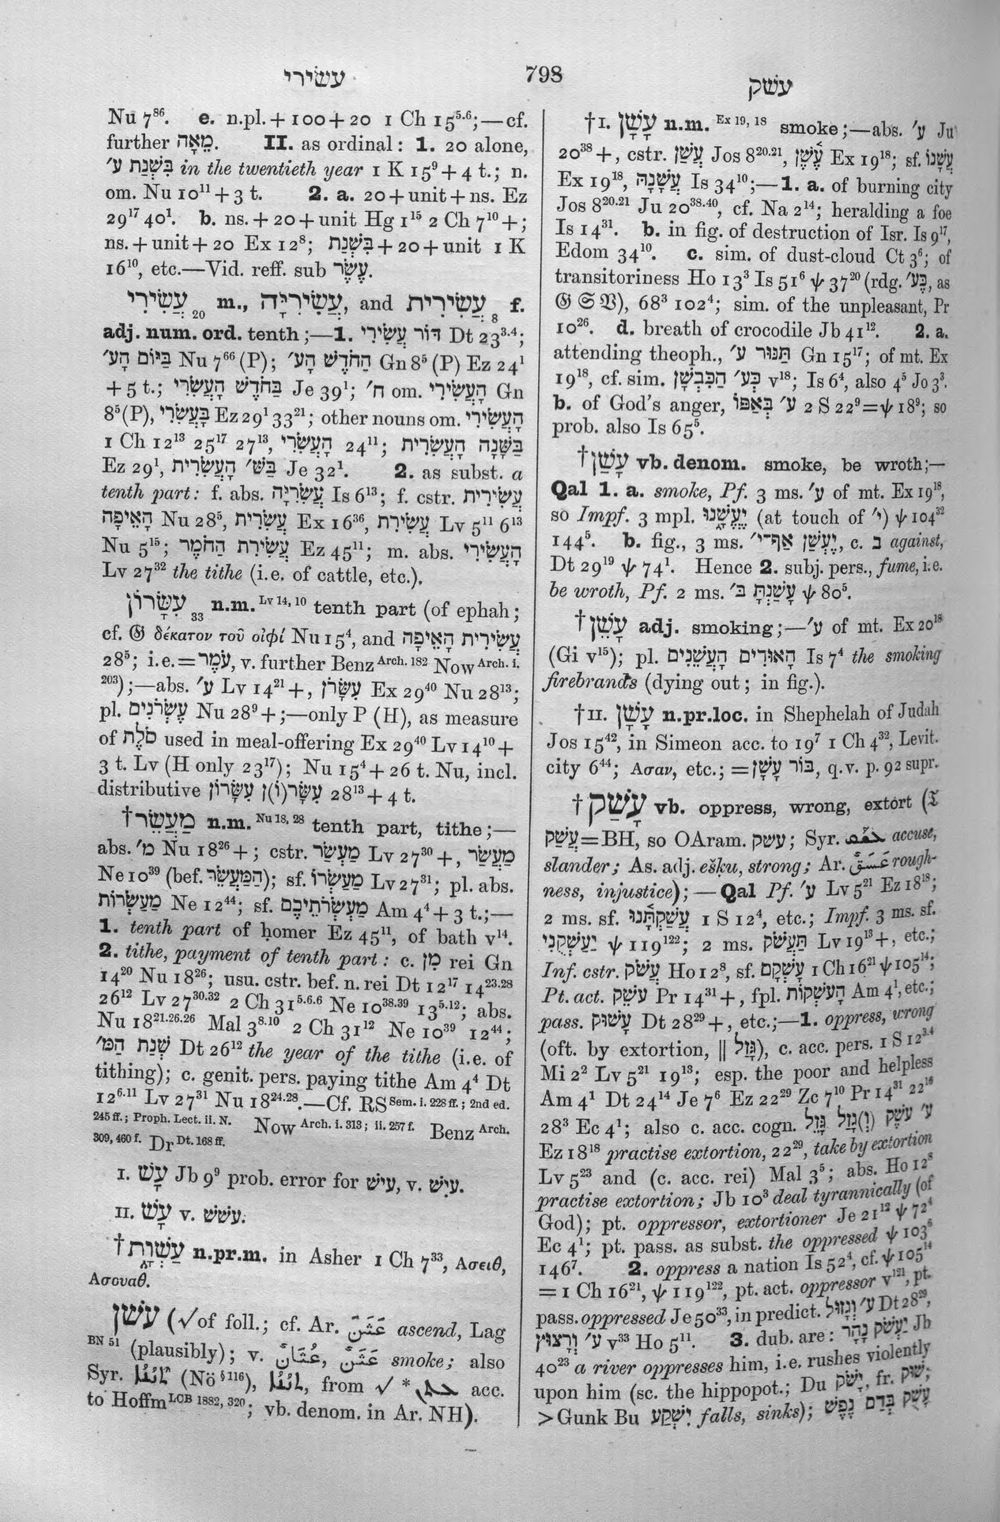 עשׂירי
798
עשׁק
Nu 7⁸⁶. e. n.pl. + 100 + 20 1 Ch 15⁵·⁶;—cf.
further מֵאָה. II. as ordinal: 1. 20 alone,
בִּשְׁנַת ע׳ in the twentieth year 1 K 15⁹ + 4 t.; n.
om. Nu 10¹¹ + 3 t. 2. a. 20 + unit + ns. Ez
29¹⁷ 40¹. b. ns. + 20 + unit Hg 1¹⁵ 2 Ch 7¹⁰ +;
ns. + unit + 20 Ex 12⁸; בִּשְׁנַת + 20 + unit 1 K
16¹⁰, etc.—Vid. reff. sub עֶשֶׂר.
עֲשִׂירִי ₂₀ m., עֲשִׂירִיָּה, and עֲשִׂירִית ₈ f.
adj. num. ord. tenth;—1. דּוֹר עֲשִׂירִי Dt 23³·⁴;
בַּיּוֹם הָע׳ Nu 7⁶⁶ (P); הַחֹדֶשׁ הָע׳ Gn 8⁵ (P) Ez 24¹
+ 5 t.; בַּחֹדֶשׁ הָעֲשִׂרִי Je 39¹; ח׳ om. הָעֲשִׂירִי Gn
8⁵ (P), בָּעֲשִׂרִי Ez 29¹ 33²¹; other nouns om. הָעֲשִׂירִי
1 Ch 12¹³ 25¹⁷ 27¹³, הָעֲשִׂרִי 24¹¹; בַּשָּׁנָה הָעֲשִׂרִית
Ez 29¹, בַּשּׁ׳ הָעֲשִׂרִית Je 32¹. 2. as subst. a
tenth part: f. abs. עֲשִׂרִיָּה Is 6¹³; f. cstr. עֲשִׂירִית
הָאֵיפָה Nu 28⁵, עֲשִׂרִית Ex 16³⁶, עֲשִׂירִת Lv 5¹¹ 6¹³
Nu 5¹⁵; עֲשִׂירִת הַחֹמֶר Ez 45¹¹; m. abs. הָעֲשִׂירִי
Lv 27³² the tithe (i.e. of cattle, etc.).
עִשָּׂרוֹן ₃₃ n.m. Lv 14, 10 tenth part (of ephah;
cf. 𝔊 δέκατον τοῦ οἰφί Nu 15⁴, and עֲשִׂירִית הָאֵיפָה
28⁵; i.e. = עֹמֶר, v. further Benz Arch. 182 Now Arch. i.
203);—abs. ע׳ Lv 14²¹ +, עִשָּׂרֹן Ex 29⁴⁰ Nu 28¹³;
pl. עֶשְׂרֹנִים Nu 28⁹ +;—only P (H), as measure
of סֹלֶת used in meal-offering Ex 29⁴⁰ Lv 14¹⁰ +
3 t. Lv (H only 23¹⁷); Nu 15⁴ + 26 t. Nu, incl.
distributive עִשָּׂר(ו)ן עִשָּׂרוֹן 28¹³ + 4 t.
†מַעֲשֵׂר n.m. Nu 18, 28 tenth part, tithe;—
abs. מ׳ Nu 18²⁶ +; cstr. מַעְשַׂר Lv 27³⁰ +, מַעֲשַׂר
Ne 10³⁹ (bef. הַמַּעֲשֵׂר); sf. מַעְשְׂרוֹ Lv 27³¹; pl. abs.
מַעַשְׂרוֹת Ne 12⁴⁴; sf. מַעְשְׂרֹתֵיכֶם Am 4⁴ + 3 t.;—
1. tenth part of ḥomer Ez 45¹¹, of bath v¹⁴.
2. tithe, payment of tenth part: c. מִן rei Gn
14²⁰ Nu 18²⁶; usu. cstr. bef. n. rei Dt 12¹⁷ 14²³·²⁸
26¹² Lv 27³⁰·³² 2 Ch 31⁵·⁶·⁶ Ne 10³⁸·³⁹ 13⁵·¹²; abs.
Nu 18²¹·²⁶·²⁶ Mal 3⁸·¹⁰ 2 Ch 31¹² Ne 10³⁹ 12⁴⁴;
שְׁנַת הַמּ׳ Dt 26¹² the year of the tithe (i.e. of
tithing); c. genit. pers. paying tithe Am 4⁴ Dt
12⁶·¹¹ Lv 27³¹ Nu 18²⁴·²⁸.—Cf. RS Sem. i. 228 ff.; 2nd ed.
245 ff.; Proph. Lect. ii. N. Now Arch. i. 313; ii. 257 f. Benz Arch.
309, 460 f. Dr Dt. 168 ff.
I. עָשׁ Jb 9⁹ prob. error for עַיִשׁ, v. עַיִשׁ.
II. עָשׁ v. עשׁשׁ.
†עַשְׁוָת n.pr.m. in Asher 1 Ch 7³³, Ασειθ,
Ασουαθ.
עשׁן (√ of foll.; cf. Ar. عَثَنَ ascend, Lag
BN 51 (plausibly); v. عَثَنَ, عُثَانٌ smoke; also
Syr. (Nö § 116), from √ * acc.
to Hoffm LCB 1882, 320; vb. denom. in Ar. NH).
†I. עָשָׁן n.m. Ex 19, 18 smoke;—abs. ע׳ Ju
20³⁸ +, cstr. עֲשַׁן Jos 8²⁰·²¹, עֶשֶׁן Ex 19¹⁸; sf. עֲשָׁנוֹ
Ex 19¹⁸, עֲשָׁנָהּ Is 34¹⁰;—1. a. of burning city
Jos 8²⁰·²¹ Ju 20³⁸·⁴⁰, cf. Na 2¹⁴; heralding a foe
Is 14³¹. b. in fig. of destruction of Isr. Is 9¹⁷,
Edom 34¹⁰. c. sim. of dust-cloud Ct 3⁶; of
transitoriness Ho 13³ Is 51⁶ ψ 37²⁰ (rdg. כֶּע׳, as
𝔊 𝔖 𝔙), 68³ 102⁴; sim. of the unpleasant, Pr
10²⁶. d. breath of crocodile Jb 41¹². 2. a.
attending theoph., תַּנּוּר ע׳ Gn 15¹⁷; of mt. Ex
19¹⁸, cf. sim. כְּע׳ הַכִּבְשָׁן v¹⁸; Is 6⁴, also 4⁵ Jo 3³.
b. of God's anger, ע׳ בְּאַפּוֹ 2 S 22⁹ = ψ 18⁹; so
prob. also Is 65⁵.
†עָשַׁן vb. denom. smoke, be wroth;—
Qal 1. a. smoke, Pf. 3 ms. ע׳ of mt. Ex 19¹⁸,
so Impf. 3 mpl. יֶעֱשָׁנוּ (at touch of י׳) ψ 104³²
144⁵. b. fig., 3 ms. יֶעְשַׁן אַף־י׳, c. בְּ against,
Dt 29¹⁹ ψ 74¹. Hence 2. subj. pers., fume, i.e.
be wroth, Pf. 2 ms. עָשַׁנְתָּ בּ׳ ψ 80⁵.
†עָשֵׁן adj. smoking;—ע׳ of mt. Ex 20¹⁸
(Gi v¹⁵); pl. הָאוּדִים הָעֲשֵׁנִים Is 7⁴ the smoking
firebrands (dying out; in fig.).
†II. עָשָׁן n.pr.loc. in Shephelah of Judah
Jos 15⁴², in Simeon acc. to 19⁷ 1 Ch 4³², Levit.
city 6⁴⁴; Ασαν, etc.; = בּוֹר עָשָׁן, q.v. p. 92 supr.
†עָשַׁק vb. oppress, wrong, extort (𝔗
עֲשַׁק = BH, so OAram. עשק; Syr. accuse,
slander; As. adj. ešḳu, strong; Ar. عَسَقٌ roughness,
ness, injustice);—Qal Pf. ע׳ Lv 5²¹ Ez 18¹⁸;
2 ms. sf. עֲשַׁקְתָּנוּ 1 S 12⁴, etc.; Impf. 3 ms. sf.
יַעַשְׁקֻנִי ψ 119¹²²; 2 ms. תַּעֲשֹׁק Lv 19¹³ +, etc.;
Inf. cstr. עֲשֹׁק Ho 12⁸, sf. עָשְׁקָם 1 Ch 16²¹ ψ 105¹⁴;
Pt. act. עֹשֵׁק Pr 14³¹ +, fpl. הָעֹשְׁקוֹת Am 4¹, etc.;
pass. עָשׁוּק Dt 28²⁹ +, etc.;—1. oppress, wrong
(oft. by extortion, ‖ גָּזַל), c. acc. pers. 1 S 12³·⁴
Mi 2² Lv 5²¹ 19¹³; esp. the poor and helpless
Am 4¹ Dt 24¹⁴ Je 7⁶ Ez 22²⁹ Zc 7¹⁰ Pr 14³¹ 22¹⁶
28³ Ec 4¹; also c. acc. cogn. ע׳ עֹשֶׁק (וְ)גָזַל גָּזֵל
Ez 18¹⁸ practise extortion, 22²⁹, take by extortion
Lv 5²³ and (c. acc. rei) Mal 3⁵; abs. Ho 12⁸
practise extortion; Jb 10³ deal tyrannically (of
God); pt. oppressor, extortioner Je 21¹² ψ 72⁴
Ec 4¹; pt. pass. as subst. the oppressed ψ 103⁶
146⁷. 2. oppress a nation Is 52⁴, cf. ψ 105¹⁴
= 1 Ch 16²¹, ψ 119¹²², pt. act. oppressor v¹²¹, pt.
pass. oppressed Je 50³³, in predict. ע׳ וְגָזוּל Dt 28²⁹,
ע׳ וְרָצוּץ v³³ Ho 5¹¹. 3. dub. are: יַעֲשֹׁק נָהָר Jb
40²³ a river oppresses him, i.e. rushes violently
upon him (sc. the hippopot.; Du יָשֹׁק, fr. שׁוק;
> Gunk Bu יִשְׁקַע falls, sinks); עָשֻׁק בְּדַם נָפֶשׁ